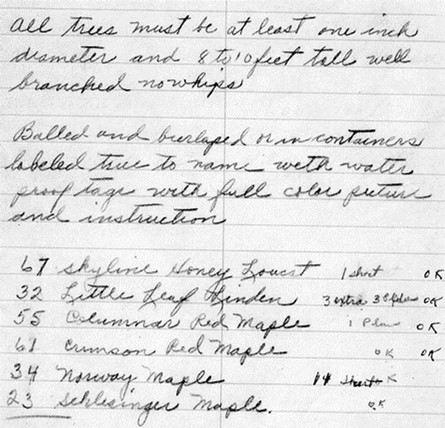 All trees must be at least one inch
diameter and 8 to 10 feet tall well
branched no whips
Balled and burlaped or in containers
labeled true to name with water
proof tags with full color picture
and instruction
67 Skyline Honey Locust 1 short OK
32 Little Leaf Linden 3 extra OK
55 Columnar Red Maple 1 OK
61 Crimson Red Maple OK OK
34 Norway Maple 14 short K
23 Schlesinger Maple. OK